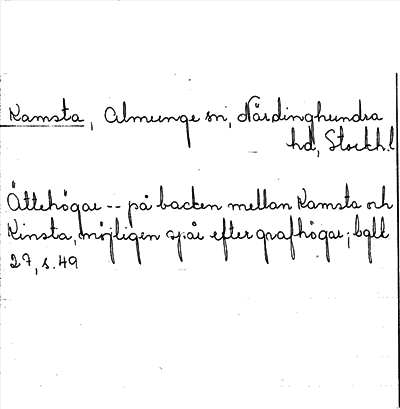 Kamsta, Almunge sn, Närdinghundra
hd, Stockh.l
Ättehögar -- på backen mellan Kamsta och
Kinsta, möjligen spår efter grafhögar; bgll
27, s. 49